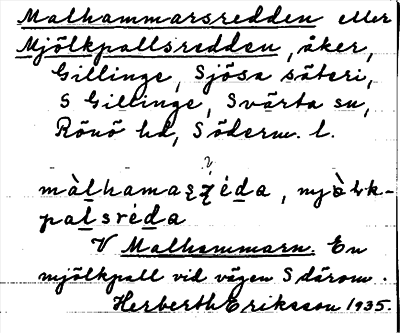 Malhammarsredden eller
Mjölkpallsredden, åker,
Gillinge, Sjösa säteri,
S Gillinge, Svärta sn,
Rönö hd, Söderm. l.
màlhamaʂʐéda, mjò̀lk-
palsréda
V Malhammarn. En
mjölkpall vid vägen S därom.
Herberth Eriksson 1935.